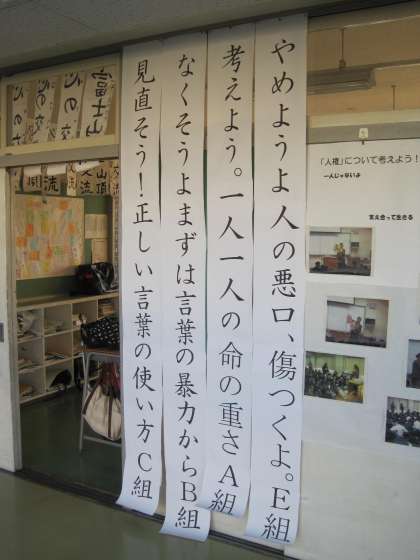 やめようよ人の悪口、傷つくよ。E組
考えよう。一人一人の命の重さA組
なくそうよまずは言葉の暴力からB組
見直そう!正しい言葉の使い方C組
「人権」について考えよう!
一人じゃないよ
支え合って生きる
富士山
心の交流
山頂
交流